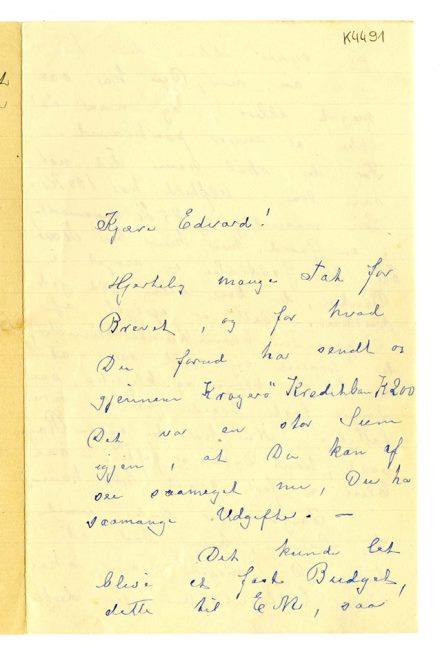 K4491
Kjære Edvard!
Hjertelig mange Tak for
Brevet, og for hvad
Du forud har sendt os
gjennem Kragerö Kreditban K 200
Det var en stor Sum
igjen, at Du kan af
see saameget nu, Du ha
saamange Udgifter. —
Det kunde let
blive et fast Budget,
dette til E M, saa